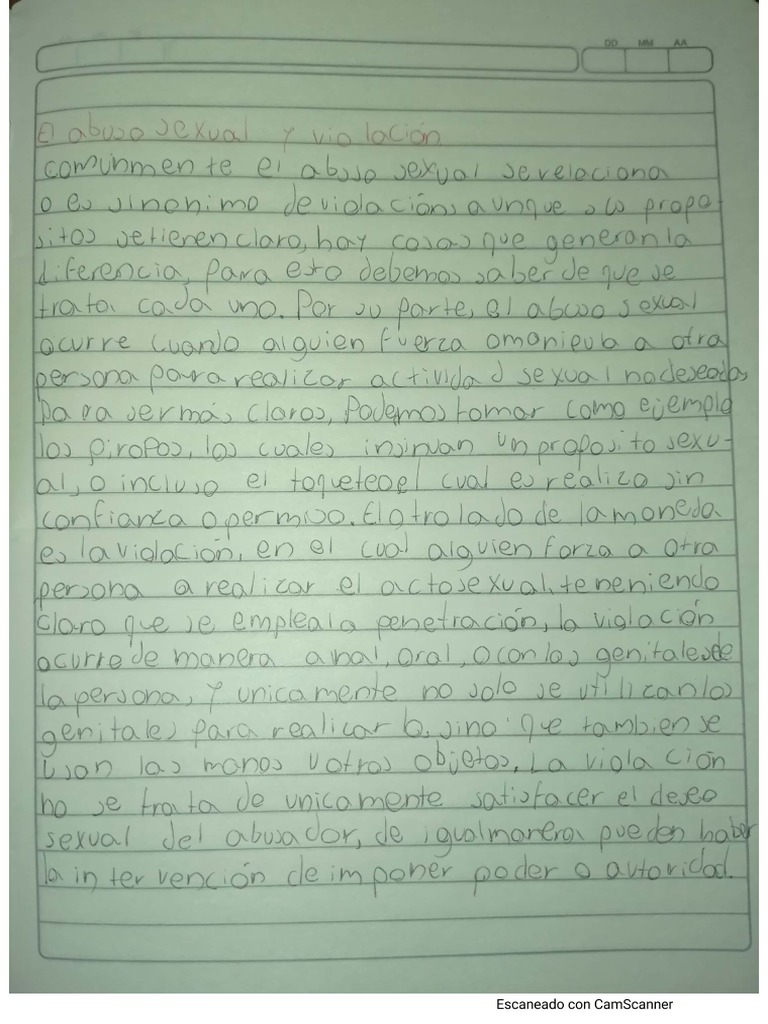 DD MM AA
El abuso sexual y violación
comúnmente el abuso sexual se relaciona
o es sinonimo de violación, aunque sus propo-
sitos se tienen claro, hay cosas que generan la
diferencia, para esto debemos saber de que se
trata cada uno. Por su parte, el abuso sexual
ocurre cuando alguien fuerza o manipula a otra
persona para realizar actividad sexual no deseada,
Para ser más claros, Podemos tomar como ejemplo
los piropos, los cuales insinuan un proposito sexu-
al, o incluso el toqueteo el cual es realiza sin
confianza o permiso. El otro lado de la moneda
es la violación, en el cual alguien forza a otra
persona a realizar el acto sexual, teneniendo
claro que se emplea la penetración, la violación
ocurre de manera anal, oral, o con los genitales de
la persona, y unicamente no solo se utilizan los
genitales para realizarlo, sino que tambien se
usan las manos u otros objetos. La violación
no se trata de unicamente satisfacer el deseo
sexual del abusador, de igual manera pueden haber
la intervención de imponer poder o autoridad.
Escaneado con CamScanner